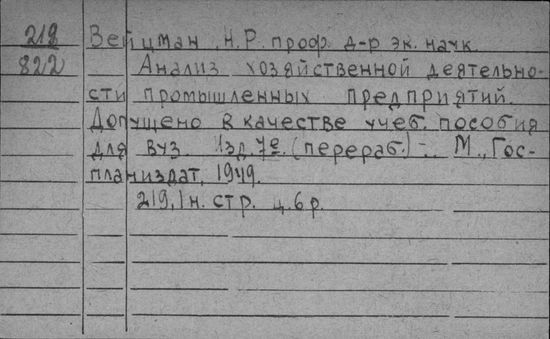 219 Вейцман, Н.Р. проф. д-р эк. наук.
822 Анализ хозяйственной деятельно-
сти промышленных предприятий.
Допущено в качестве учеб. пособия
для вуз. Изд. 7е. (перераб.) -. М., Гос-
планиздат, 1949.
219, 1 н. стр. ц. 6 р.